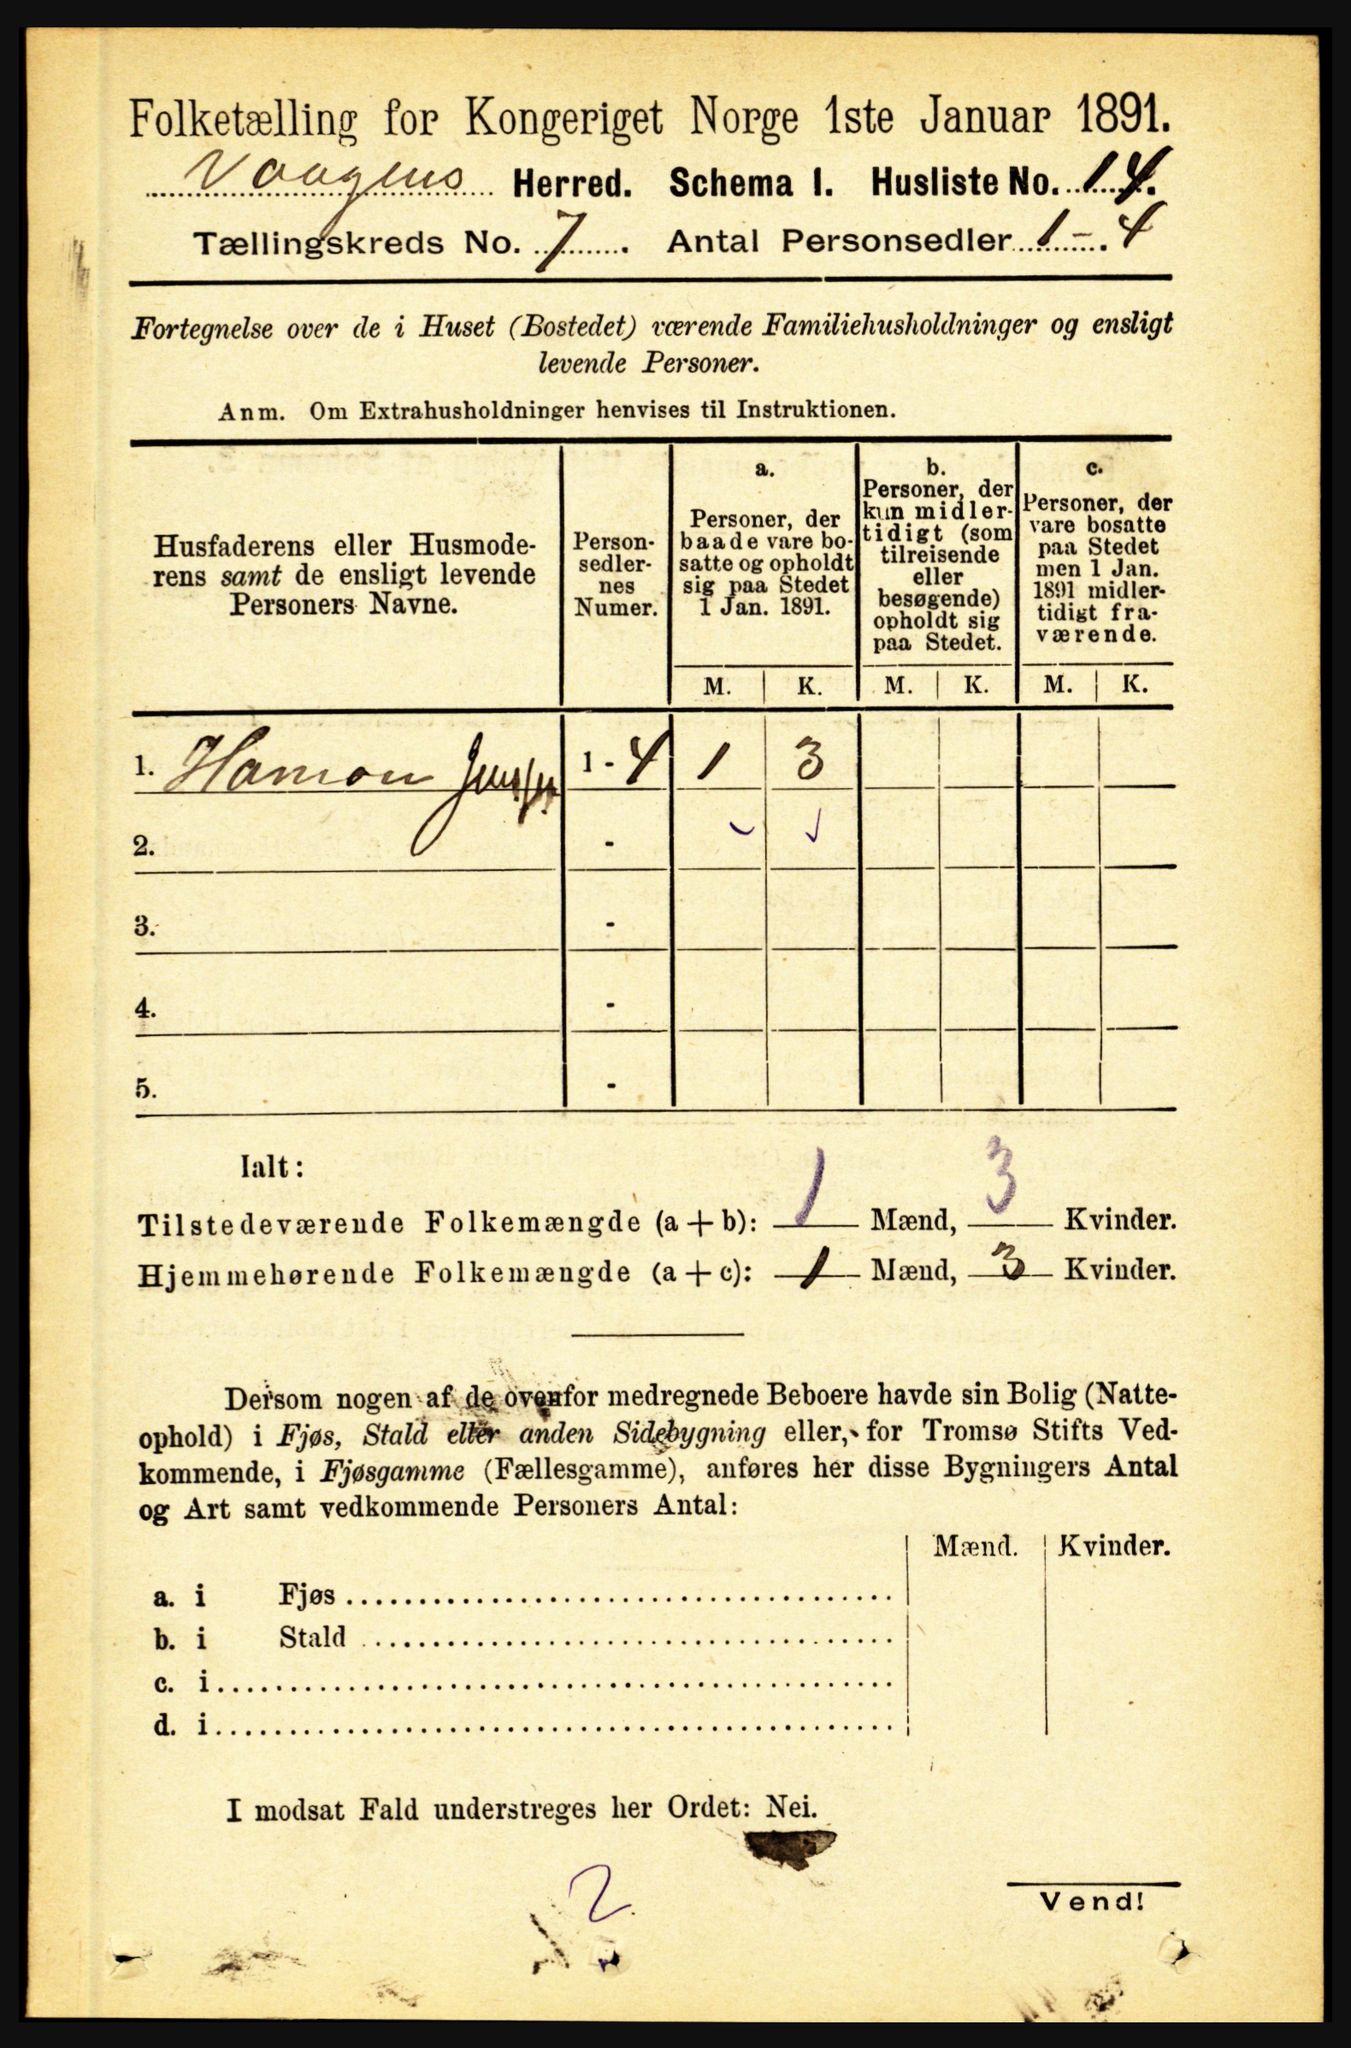 Folketælling for Kongeriget Norge 1ste Januar 1891.
Vaagens Herred. Schema I. Husliste No. 14.
Tællingskreds No. 7. Antal Personsedler 1-4
Fortegnelse over de i Huset (Bostedet) værende Familiehusholdninger og ensligt
levende Personer.
Anm. Om Extrahusholdninger henvises til Instruktionen.
Husfaderens eller Husmode-
rens samt de ensligt levende
Personers Navne.
Person-
sedler-
nes
Numer.
a.
Personer, der
baade vare bo-
satte og opholdt
sig paa Stedet
1 Jan. 1891.
b.
Personer, der
kun midler-
tidigt (som
tilreisende
eller
besøgende)
opholdt sig
paa Stedet.
c.
Personer, der
vare bosatte
paa Stedet
men 1 Jan.
1891 midler-
tidigt fra-
værende.
M. K. M. K. M. K.
1. Hamon 1-4 1 3
2. -
3. -
4. -
5. -
Ialt:
Tilstedeværende Folkemængde (a + b): 1 Mænd, 3 Kvinder.
Hjemmehørende Folkemængde (a + c): 1 Mænd, 3 Kvinder.
Dersom nogen af de ovenfor medregnede Beboere havde sin Bolig (Natte-
ophold) i Fjøs, Stald eller anden Sidebygning eller, for Tromsø Stifts Ved-
kommende, i Fjøsgamme (Fællesgamme), anføres her disse Bygningers Antal
og Art samt vedkommende Personers Antal:
Mænd. Kvinder.
a. i Fjøs
b. i Stald
c. i
d. i
I modsat Fald understreges her Ordet: Nei.
2
Vend!